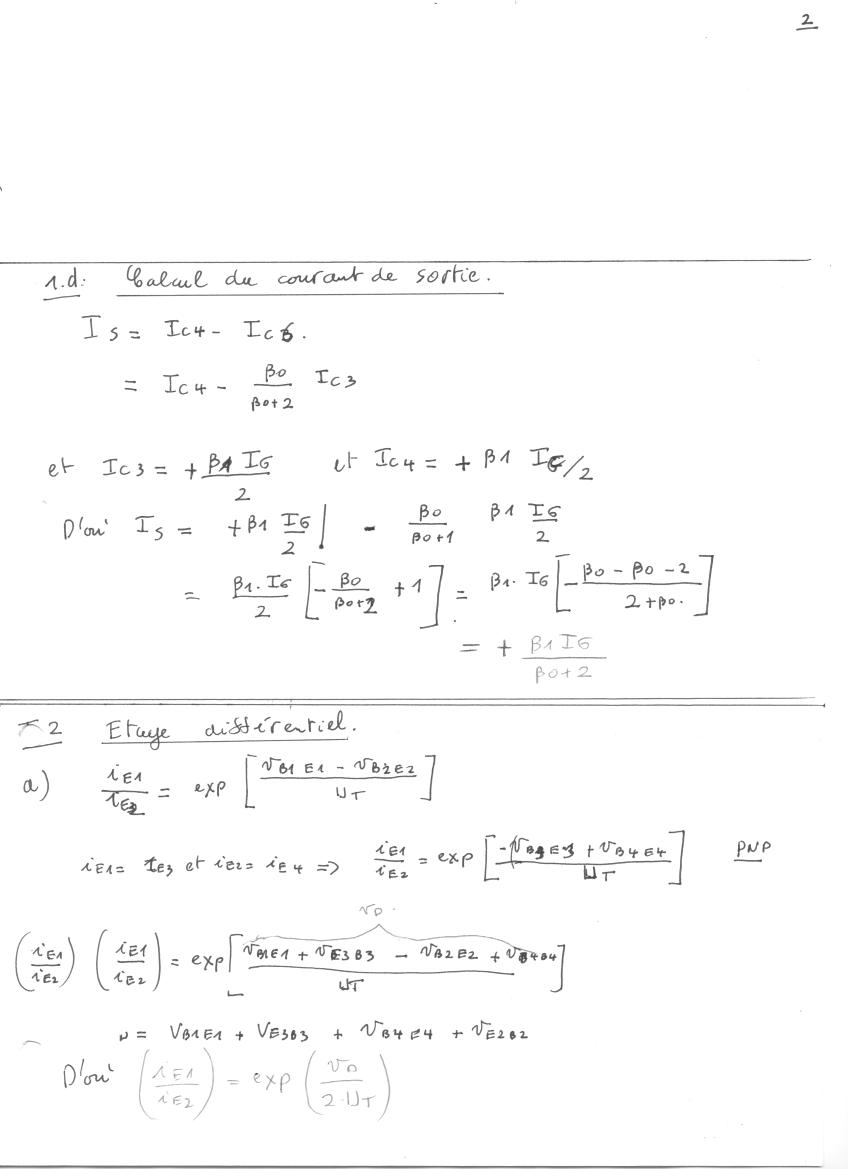 2
1.d: Calcul du courant de sortie.
I S = IC4 - IC6.
= IC4 - β0/(β0+2) IC3
et IC3 = + β1 IG/2 et IC4 = + β1 IG/2
D'où IS = + β1 IG/2 - β0/(β0+1) β1 IG/2
= β1. IG/2 [-β0/(β0+2) + 1] = β1. IG [-(β0 - β0 - 2)/(2+β0.)]
= + β1 IG/(β0+2)
2 Etage différentiel.
a) iE1/iE2 = exp [(vB1E1 - vB2E2)/UT]
iE1 = iE3 et iE2 = iE4 => iE1/iE2 = exp [(-vB3E3 + vB4E4)/UT] PNP
vD.
(iE1/iE2) (iE1/iE2) = exp [(vB1E1 + vE3B3 - vB2E2 + vB4B4)/UT]
= VB1E1 + VE3B3 + vB4E4 + vE2B2
D'où (iE1/iE2) = exp (vD/(2.UT))